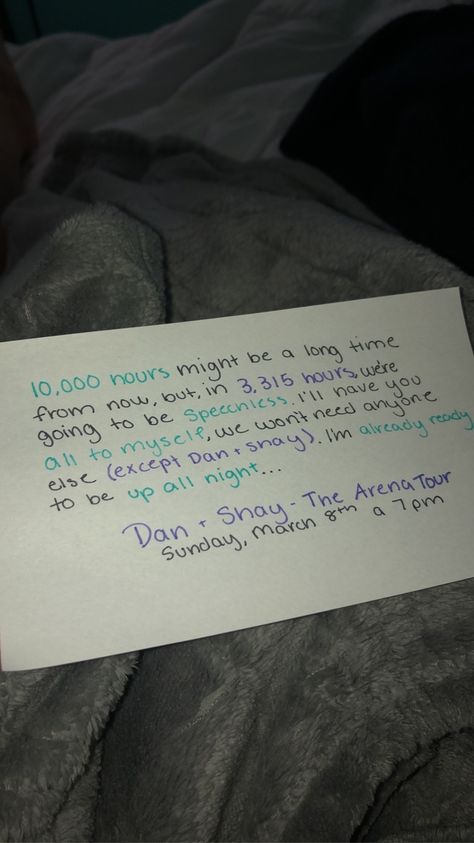 10,000 hours might be a long time
from now, but, in 3,315 hours, we're
going to be Speechless. I'll have you
all to myself, we won't need anyone
else (except Dan + Shay). I'm already ready
to be up all night...
Dan + Shay - The Arena Tour
Sunday, March 8th a 7pm